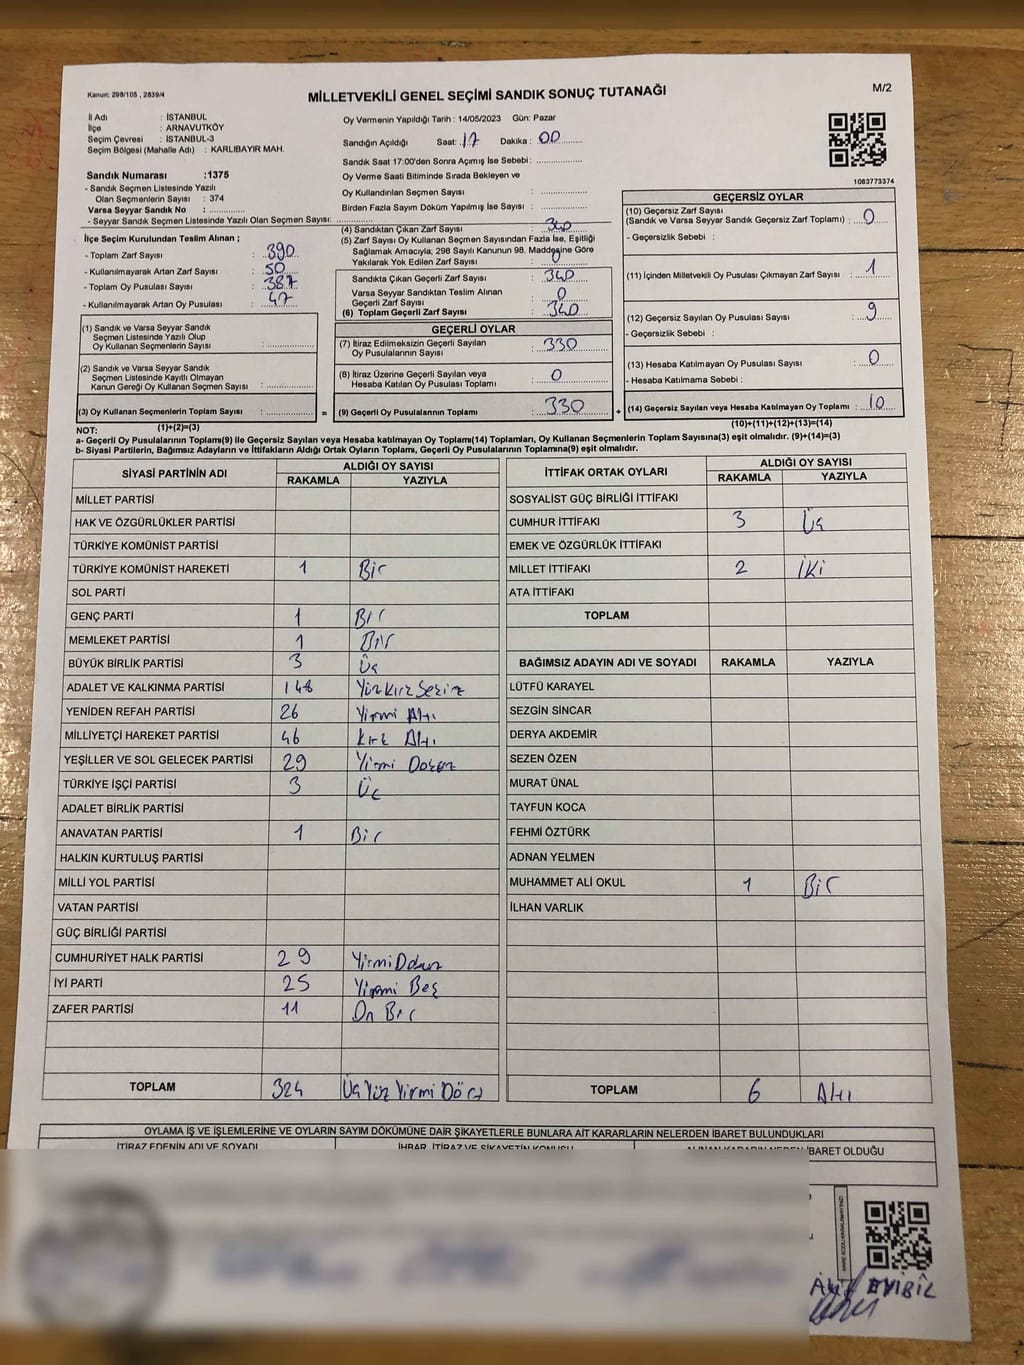 Kanun: 298/105 , 2839/4
MİLLETVEKİLİ GENEL SEÇİMİ SANDIK SONUÇ TUTANAĞI
M/2
İl Adı : İSTANBUL
İlçe : ARNAVUTKÖY
Seçim Çevresi : İSTANBUL-3
Seçim Bölgesi (Mahalle Adı) : KARLIBAYIR MAH.
Oy Vermenin Yapıldığı Tarih : 14/05/2023 Gün: Pazar
Sandığın Açıldığı Saat: 17 Dakika : 00
Sandık Saat 17:00'den Sonra Açımış İse Sebebi :
Oy Verme Saati Bitiminde Sırada Bekleyen ve
Oy Kullandırılan Seçmen Sayısı :
Birden Fazla Sayım Döküm Yapılmış İse Sayısı :
1083773374
Sandık Numarası :1375
- Sandık Seçmen Listesinde Yazılı
Olan Seçmenlerin Sayısı : 374
Varsa Seyyar Sandık No :
- Seyyar Sandık Seçmen Listesinde Yazılı Olan Seçmen Sayısı:
İlçe Seçim Kurulundan Teslim Alınan ;
- Toplam Zarf Sayısı : 390
- Kullanılmayarak Artan Zarf Sayısı : 50
- Toplam Oy Pusulası Sayısı : 387
- Kullanılmayarak Artan Oy Pusulası : 47
(1) Sandık ve Varsa Seyyar Sandık
Seçmen Listesinde Yazılı Olup
Oy Kullanan Seçmenlerin Sayısı :
(2) Sandık ve Varsa Seyyar Sandık
Seçmen Listesinde Kayıtlı Olmayan
Kanun Gereği Oy Kullanan Seçmen Sayısı :
(3) Oy Kullanan Seçmenlerin Toplam Sayısı : =
(4) Sandıktan Çıkan Zarf Sayısı : 340
(5) Zarf Sayısı Oy Kullanan Seçmen Sayısından Fazla İse, Eşitliği
Sağlamak Amacıyla; 298 Sayılı Kanunun 98. Maddesine Göre
Yakılarak Yok Edilen Zarf Sayısı : 0
Sandıkta Çıkan Geçerli Zarf Sayısı : 340
Varsa Seyyar Sandıktan Teslim Alınan
Geçerli Zarf Sayısı : 0
(6) Toplam Geçerli Zarf Sayısı : 340
GEÇERLİ OYLAR
(7) İtiraz Edilmeksizin Geçerli Sayılan
Oy Pusulalarının Sayısı : 330
(8) İtiraz Üzerine Geçerli Sayılan veya
Hesaba Katılan Oy Pusulası Toplamı : 0
(9) Geçerli Oy Pusulalarının Toplamı : 330 +
GEÇERSİZ OYLAR
(10) Geçersiz Zarf Sayısı
(Sandık ve Varsa Seyyar Sandık Geçersiz Zarf Toplamı) : 0
- Geçersizlik Sebebi :
(11) İçinden Milletvekili Oy Pusulası Çıkmayan Zarf Sayısı : 1
(12) Geçersiz Sayılan Oy Pusulası Sayısı : 9
- Geçersizlik Sebebi :
(13) Hesaba Katılmayan Oy Pusulası Sayısı : 0
- Hesaba Katılmama Sebebi :
(14) Geçersiz Sayılan veya Hesaba Katılmayan Oy Toplamı : 10
NOT: (1)+(2)=(3) (10)+(11)+(12)+(13)=(14)
a- Geçerli Oy Pusulalarının Toplamı(9) ile Geçersiz Sayılan veya Hesaba katılmayan Oy Toplamı(14) Toplamları, Oy Kullanan Seçmenlerin Toplam Sayısına(3) eşit olmalıdır. (9)+(14)=(3)
b- Siyasi Partilerin, Bağımsız Adayların ve İttifakların Aldığı Ortak Oyların Toplamı, Geçerli Oy Pusulalarının Toplamına(9) eşit olmalıdır.
SİYASİ PARTİNİN ADI ALDIĞI OY SAYISI
RAKAMLA YAZIYLA
MİLLET PARTİSİ
HAK VE ÖZGÜRLÜKLER PARTİSİ
TÜRKİYE KOMÜNİST PARTİSİ
TÜRKİYE KOMÜNİST HAREKETİ 1 Bir
SOL PARTİ
GENÇ PARTİ 1 Bir
MEMLEKET PARTİSİ 1 Bir
BÜYÜK BİRLİK PARTİSİ 3 Üç
ADALET VE KALKINMA PARTİSİ 148 Yüz Kırk Sekiz
YENİDEN REFAH PARTİSİ 26 Yirmi Altı
MİLLİYETÇİ HAREKET PARTİSİ 46 Kırk Altı
YEŞİLLER VE SOL GELECEK PARTİSİ 29 Yirmi Dokuz
TÜRKİYE İŞÇİ PARTİSİ 3 Üç
ADALET BİRLİK PARTİSİ
ANAVATAN PARTİSİ 1 Bir
HALKIN KURTULUŞ PARTİSİ
MİLLİ YOL PARTİSİ
VATAN PARTİSİ
GÜÇ BİRLİĞİ PARTİSİ
CUMHURİYET HALK PARTİSİ 29 Yirmi Dokuz
İYİ PARTİ 25 Yirmi Beş
ZAFER PARTİSİ 11 On Bir
TOPLAM 324 Üç Yüz Yirmi Dört
İTTİFAK ORTAK OYLARI ALDIĞI OY SAYISI
RAKAMLA YAZIYLA
SOSYALİST GÜÇ BİRLİĞİ İTTİFAKI
CUMHUR İTTİFAKI 3 Üç
EMEK VE ÖZGÜRLÜK İTTİFAKI
MİLLET İTTİFAKI 2 İki
ATA İTTİFAKI
TOPLAM
BAĞIMSIZ ADAYIN ADI VE SOYADI RAKAMLA YAZIYLA
LÜTFÜ KARAYEL
SEZGİN SİNCAR
DERYA AKDEMİR
SEZEN ÖZEN
MURAT ÜNAL
TAYFUN KOCA
FEHMİ ÖZTÜRK
ADNAN YELMEN
MUHAMMET ALİ OKUL 1 Bir
İLHAN VARLIK
TOPLAM 6 Altı
OYLAMA İŞ VE İŞLEMLERİNE VE OYLARIN SAYIM DÖKÜMÜNE DAİR ŞİKAYETLERLE BUNLARA AİT KARARLARIN NELERDEN İBARET BULUNDUKLARI
İTİRAZ EDENİN ADI VE SOYADI İHBAR, İTİRAZ VE ŞİKAYETİN KONUSU ALINAN KARARIN NEDEN İBARET OLDUĞU